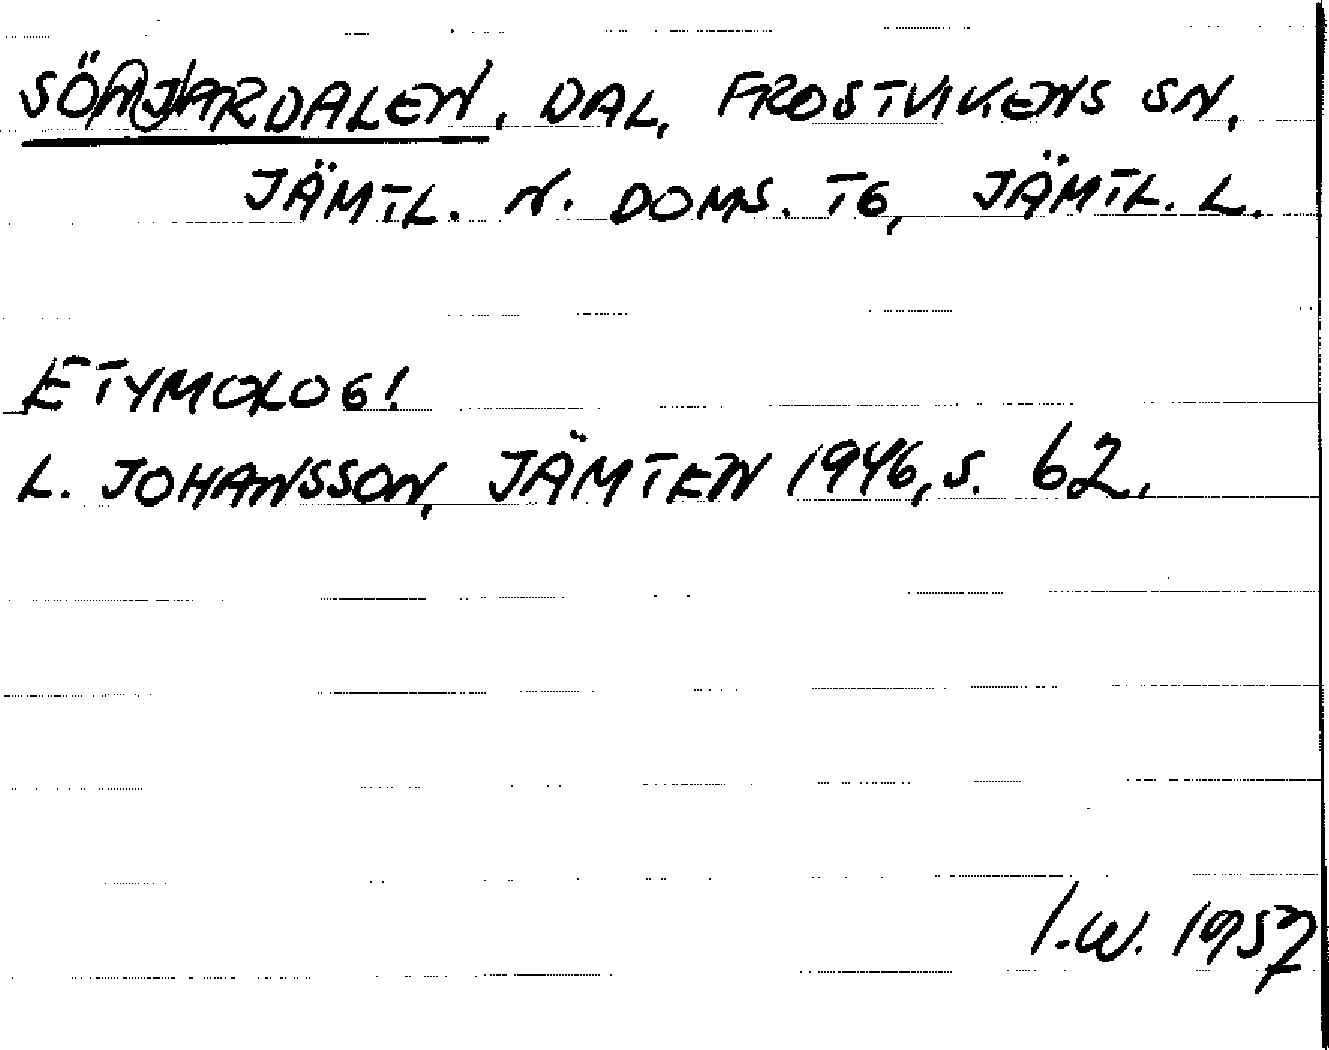 SÖMJARDALEN, DAL, FROSTVIKENS SN,
JÄMTL. N. DOMS. TG, JÄMTL. L.
ETYMOLOGI
L. JOHANSSON, JÄMTEN 1946, S. 62.
I.W. 1957